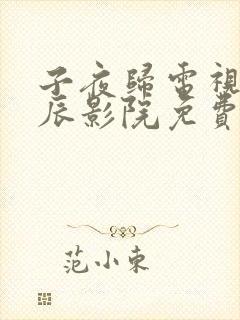 子夜歸電視
辰影院免費
范小東